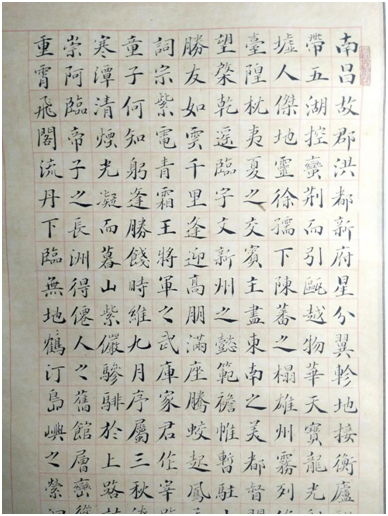 南昌故郡洪都新府星分翼軫地接衡廬
帶五湖控蠻荊而引甌越物華天寶龍光
墟人傑地靈徐孺下陳蕃之榻雄州霧列
臺隍枕夷夏之交賓主盡東南之美都督
望棨戟遙臨宇文新州之懿範襜帷暫駐
勝友如雲千里逢迎高朋滿座騰蛟起鳳
詞宗紫電青霜王將軍之武庫家君作宰
童子何知躬逢勝餞時維九月序屬三秋
寒潭清煙光凝而暮山紫儼驂騑於上路
崇阿臨帝子之長洲得僊人之舊館層巒
重霄飛閣流丹下臨無地鶴汀島嶼之縈